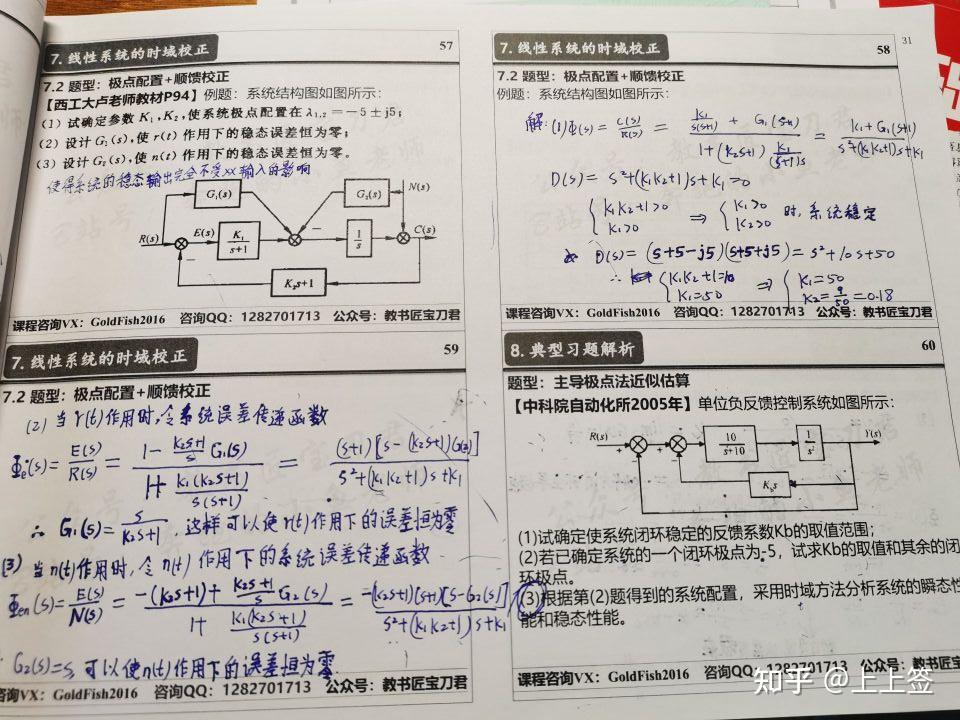 7. 线性系统的时域校正
57
7.2 题型：极点配置+顺馈校正
【西工大卢老师教材P94】例题：系统结构图如图所示：
(1) 试确定参数 K₁,K₂,使系统极点配置在 λ₁,₂=−5±j5;
(2) 设计 G₁(s),使 r(t) 作用下的稳态误差恒为零;
(3) 设计 G₂(s),使 n(t) 作用下的稳态误差恒为零。
使得系统的稳态输出完全不受xx输入的影响
G₁(s)
G₂(s)
N(s)
R(s)
E(s)
K₁/(s+1)
1/s
C(s)
K₂s+1
课程咨询VX：GoldFish2016 咨询QQ：1282701713 公众号：教书匠宝刀君
7. 线性系统的时域校正
58
31
7.2 题型：极点配置+顺馈校正
例题：系统结构图如图所示：
解: (1) Φ(s) = C(s)/R(s) =
= (K₁+G₁(s+1))/(s²+(K₁K₂+1)s+K₁)
D(s) = s²+(K₁K₂+1)s+K₁=0
{K₁K₂+1>0 K₁>0 ⇒ {K₁>0 K₂>0 时,系统稳定
D(s) = (s+5-j5)(s+5+j5) = s²+10s+50
∴ {K₁K₂+1=10 K₁=50 ⇒ {K₁=50 K₂=9/50=0.18
课程咨询VX：GoldFish2016 咨询QQ：1282701713 公众号：教书匠宝刀君
7. 线性系统的时域校正
59
7.2 题型：极点配置+顺馈校正
(2) 当 r(t)作用时,令系统误差传递函数
Φe(s)= E(s)/R(s) = (1-(K₂s+1)/s G₁(s))/(1+K₁(K₂s+1)/(s(s+1))) = (s+1)[s-(K₂s+1)G(s)]/(s²+(K₁K₂+1)s+K₁)
∴ G₁(s)= s/(K₂s+1) ,这样可以使r(t)作用下的误差恒为零
(3) 当n(t)作用时,令n(t)作用下的系统误差传递函数
Φen(s)= E(s)/N(s) = (-(K₂s+1)+(K₂s+1)/s G₂(s))/(1+K₁(K₂s+1)/(s(s+1))) = -(K₂s+1)(s+1)[s-G₂(s)]/(s²+(K₁K₂+1)s+K₁)
G₂(s)=s 可以使n(t)作用下的误差恒为零.
咨询VX：GoldFish2016 咨询QQ：1282701713 公众号：教书匠宝刀君
8. 典型习题解析
60
题型：主导极点法近似估算
【中科院自动化所2005年】单位负反馈控制系统如图所示：
R(s)
10/(s+10)
1/s²
Y(s)
K_b s
(1)试确定使系统闭环稳定的反馈系数Kb的取值范围;
(2)若已确定系统的一个闭环极点为-5，试求Kb的取值和其余的闭
环极点。
(3)根据第(2)题得到的系统配置，采用时域方法分析系统的瞬态性
能和稳态性能。
课程咨询VX：GoldFish2016 咨询QQ：1282701713 公众号：教书匠宝刀君
知乎 @上上签